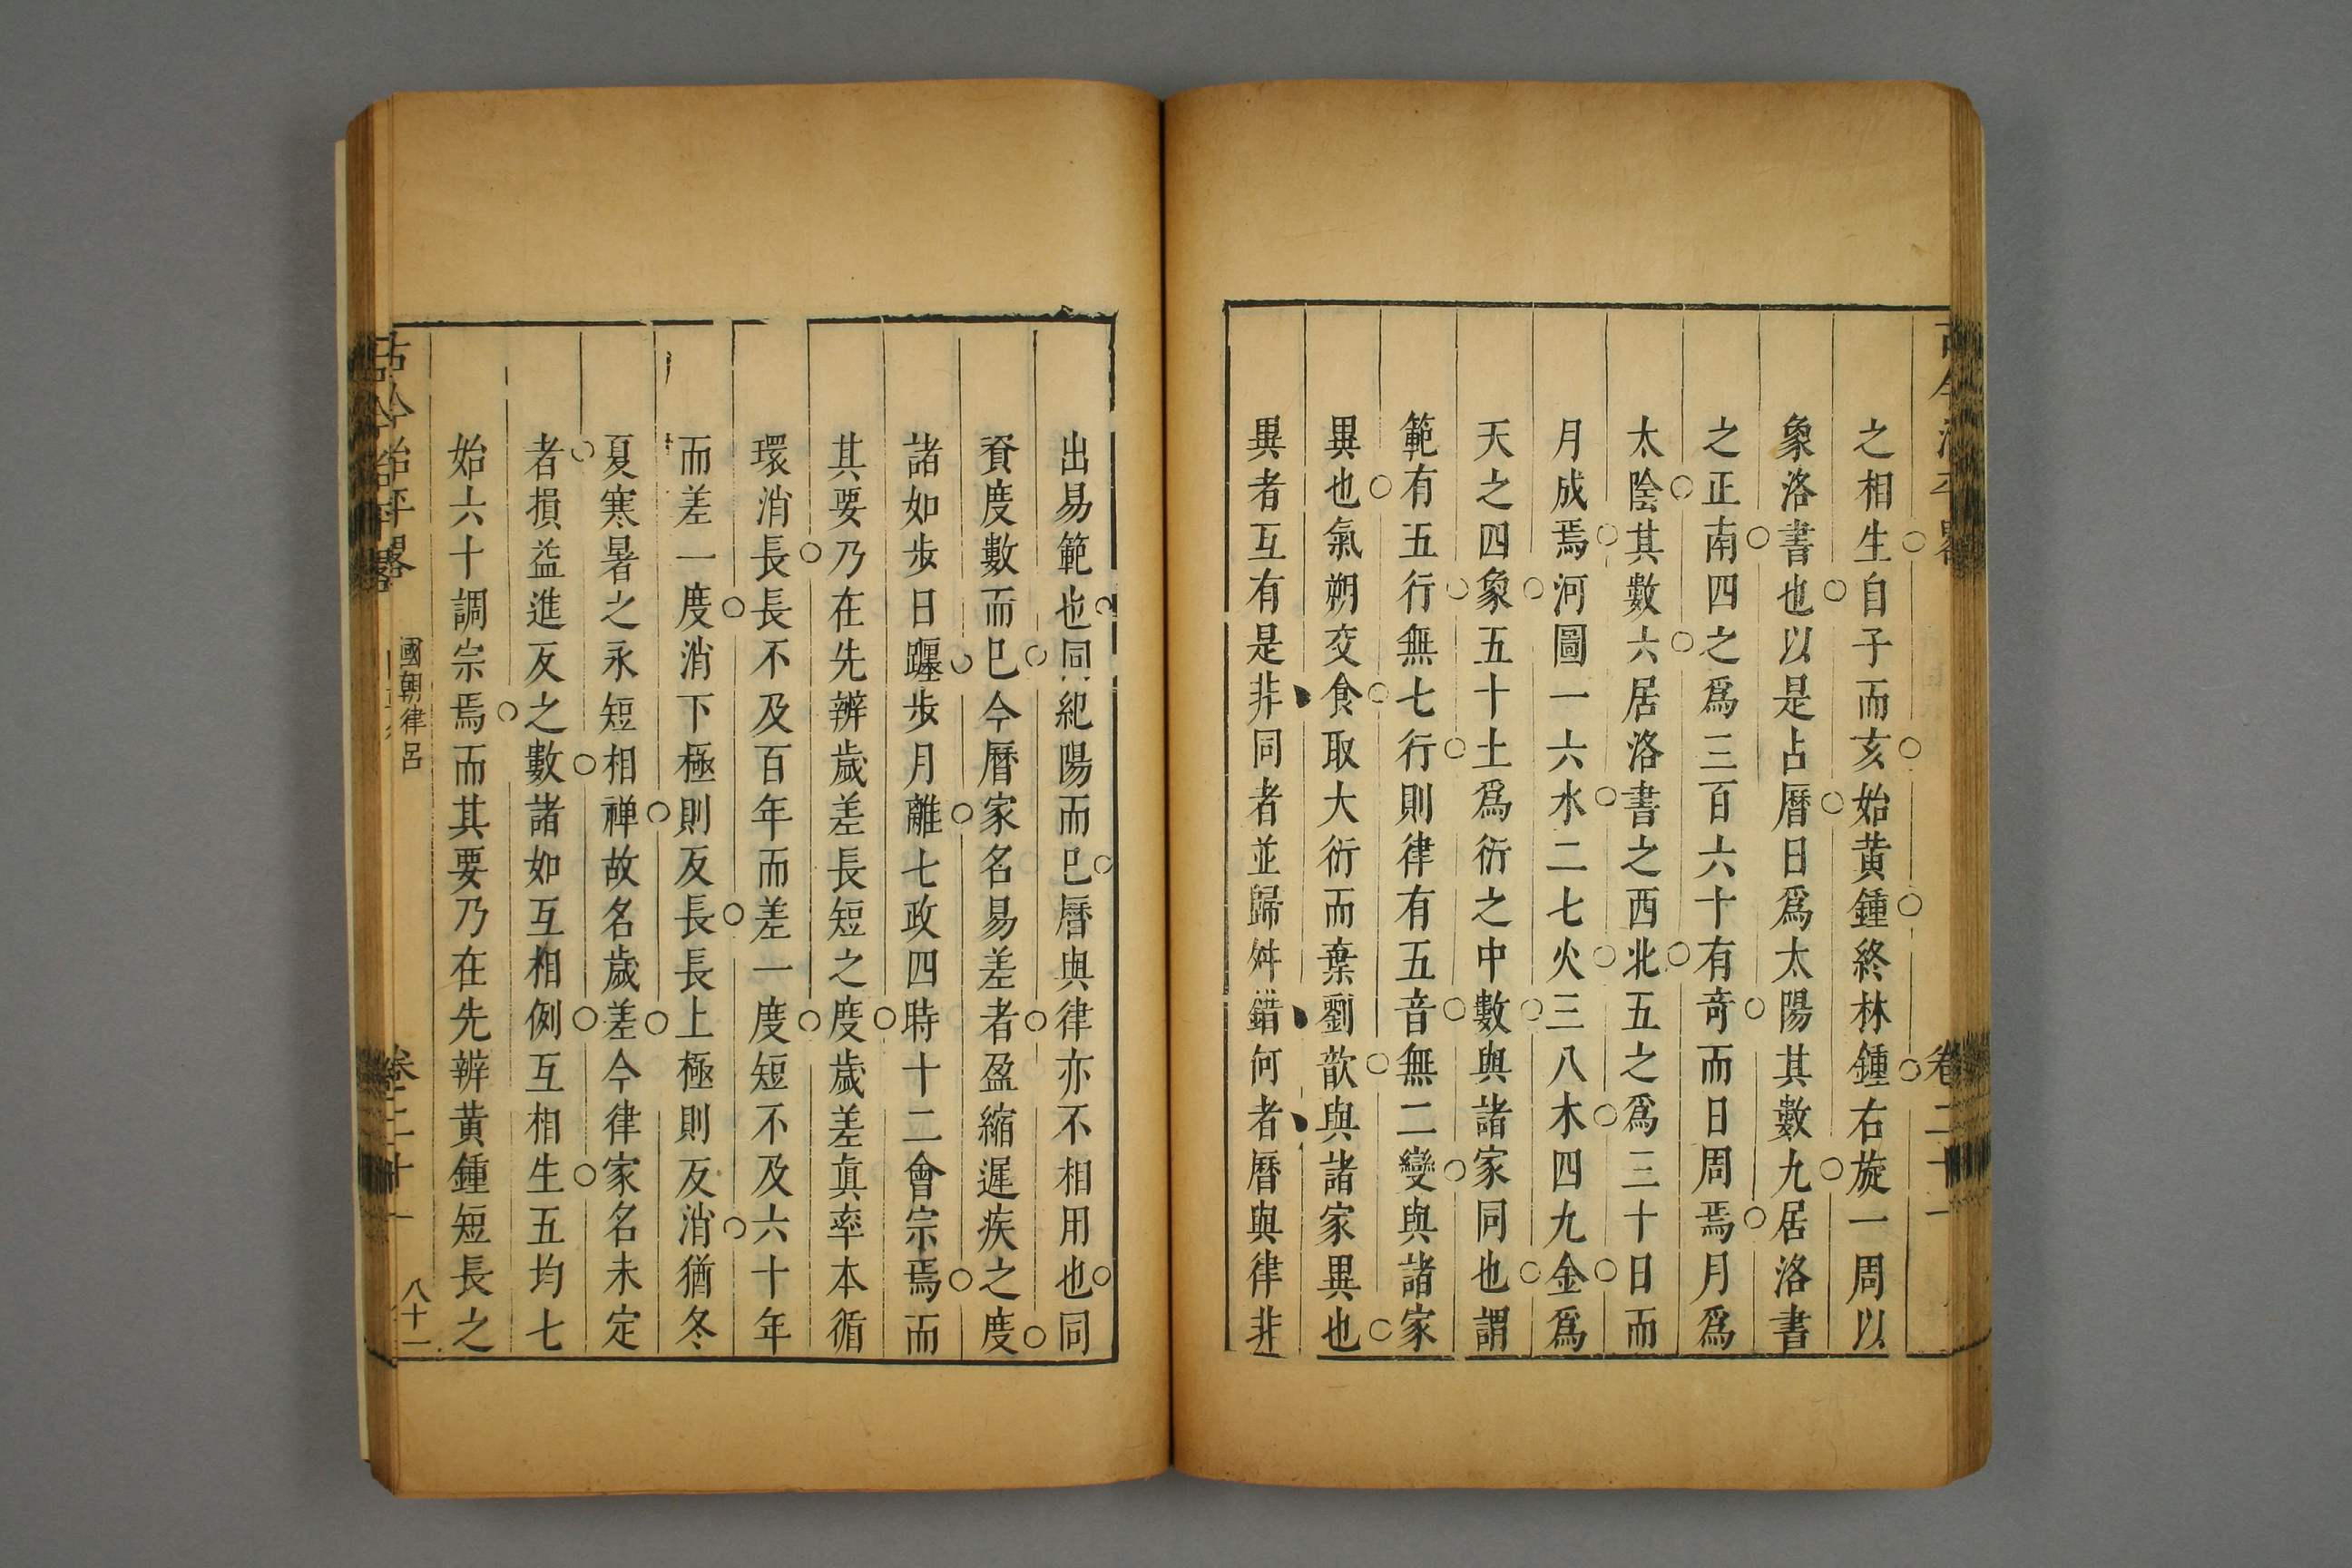 古今治平畧 卷二十一
之相生自子而亥始黃鍾終林鍾右旋一周以
象洛書也以是占曆日爲太陽其數九居洛書
之正南四之爲三百六十有奇而日周焉月爲
太陰其數六居洛書之西北五之爲三十日而
月成焉河圖一六水二七火三八木四九金爲
天之四象五十土爲衍之中數與諸家同也謂
範有五行無七行則律有五音無二變與諸家
異也氣朔交食取大衍而棄劉歆與諸家異也
異者互有是非同者並歸舛錯何者曆與律非
出易範也同紀陽而巳曆與律亦不相用也同
資度數而巳今曆家名易差者盈縮遲疾之度
諸如步日躔步月離七政四時十二會宗焉而
其要乃在先辨歲差長短之度歲差真率本循
環消長長不及百年而差一度短不及六十年
而差一度消下極則反長長上極則反消猶冬
夏寒暑之永短相禪故名歲差今律家名未定
者損益進反之數諸如互相例互相生五均七
始六十調宗焉而其要乃在先辨黃鍾短長之
古今治平畧 國朝律呂 卷二十一 八十一